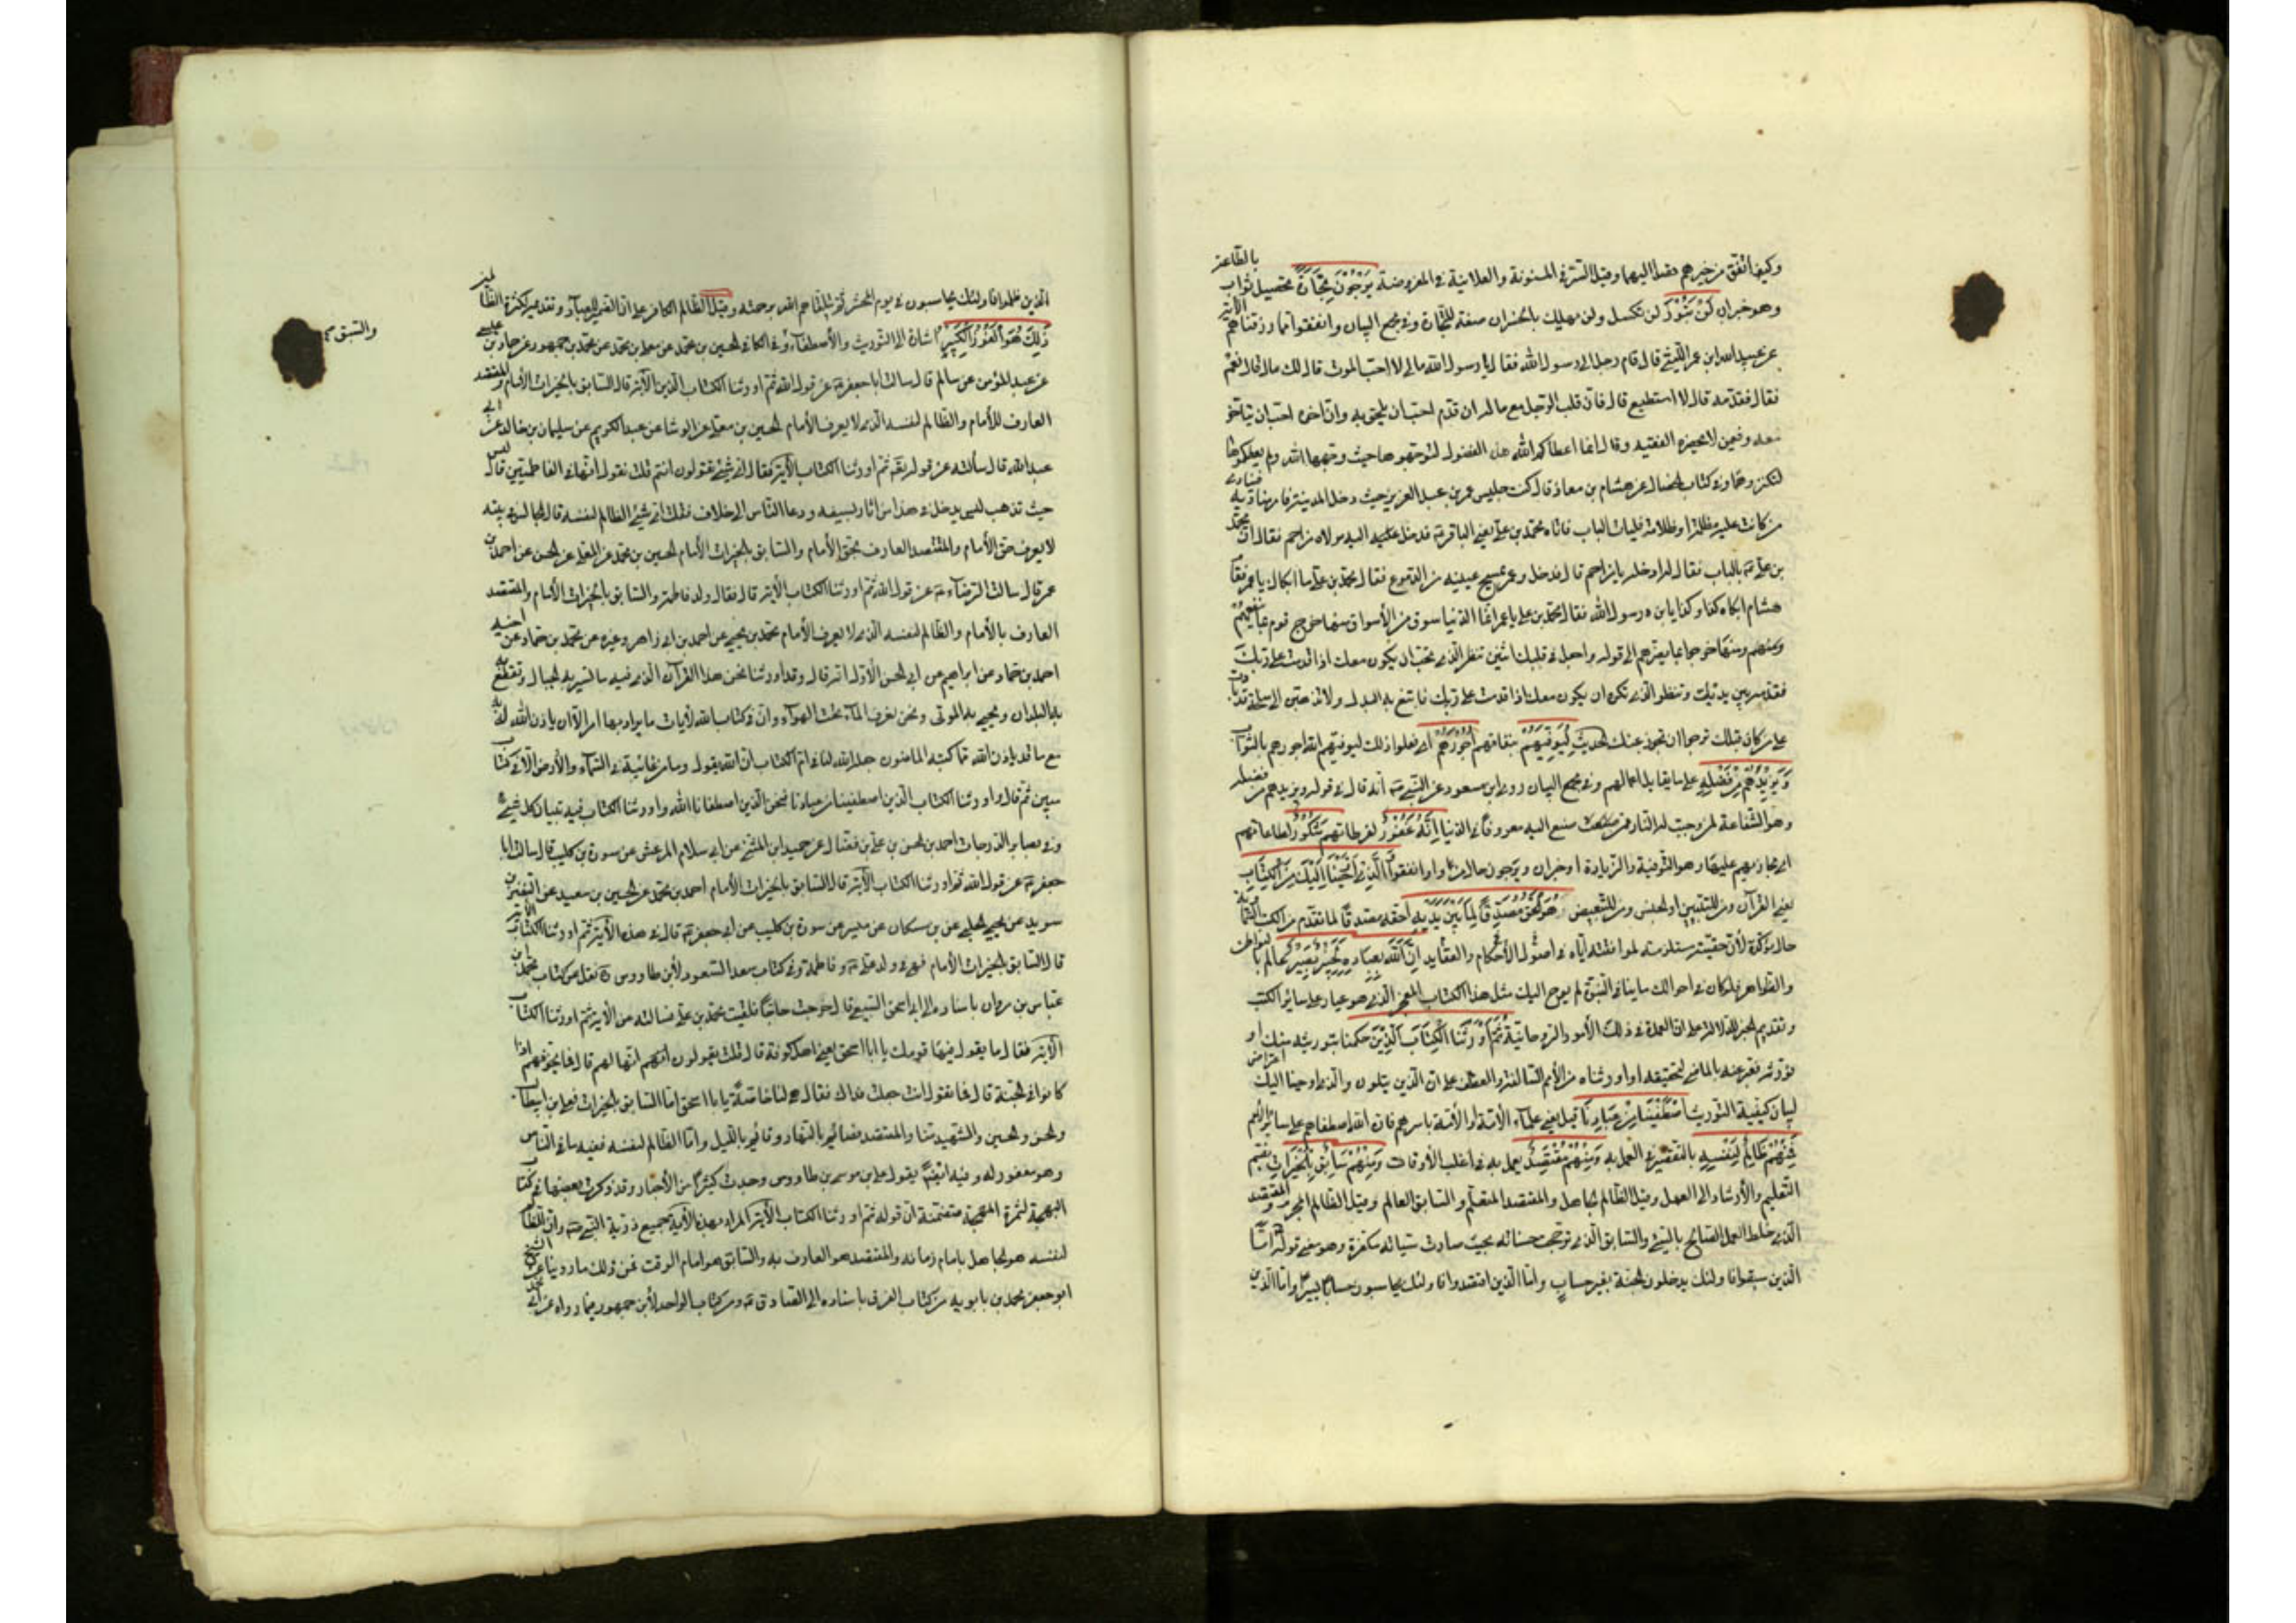 وكيف اتفق من غيرهم قصدا اليهما وقيل السر في المسنونة والعلانية في المفروضة يَرْجُونَ تِجَارَةً تحصيل ثواب بالطاعة
وهو خبر ان لَنْ تَبُورَ لن تكسد ولن تهلك بالخسران صفة للتجارة وفي مجمع البيان وانفقوا مما رزقناهم الآية
عن عبيد الله ابن عمر الليثي قال قام رجل الى رسول الله فقال يا رسول الله مالي لا احب الموت قال لك مال قال نعم
فقال فقدمه قال لا استطيع قال فان قلب الرجل مع ماله ان قدم احب ان يلحق به وان اخره احب ان يتاخر
معه وفي من لا يحضره الفقيه وقال انما اعطاكم الله هذه الفضول لتوجهوها حيث وجهها الله ولم يعطكموها
لتكنزوها وفي كتاب الخصال عن هشام بن معاذ قال كنت جليس عمر بن عبد العزيز حيث دخل المدينة فامر مناديه فنادى
من كانت عليه مظلمة او ظلامة فليات الباب فاتاه محمد بن علي يعني الباقر فدخل اليه مولاه مزاحم فقال ان محمد
بن علي بالباب فقال له ادخله يا مزاحم قال فدخل وعمر يمسح عينيه من الدموع فقال محمد بن علي ما ابكاك يا عمر فقال
هشام ابكاه كذا وكذا يابن رسول الله فقال محمد بن علي يا عمر انما الدنيا سوق من الاسواق منها خرج قوم بما ينفعهم
ومنهم ومنها خرجوا بما يضرهم الى قوله واجعل في قلبك اثنين تنظر الذي تحب ان يكون معك اذا قدمت على ربك
فقدمه بين يديك وتنظر الذي تكره ان يكون معك اذا قدمت على ربك فابتغ به البدل ولا تذهبن الى سلعة قد بارت
على من كان قبلك ترجوا ان تجوز عنك الحديث لِيُوَفِّيَهُمْ بنفاقهم أُجُورَهُمْ اي فعلوا ذلك ليوفيهم الله اجورهم بالثواب
وَيَزِيدَهُمْ مِنْ فَضْلِهِ على ما يقابل اعمالهم وفي مجمع البيان روى ابن مسعود عن النبي انه قال في قوله ويزيدهم من فضله
وهو الشفاعة لمن وجبت له النار ممن صنع اليه معروفا في الدنيا إِنَّهُ غَفُورٌ لفرطاتهم شَكُورٌ لطاعاتهم
اي مجازيهم عليها وهو التوفية والزيادة او خبر ان ويرجون حال من واو وانفقوا وَالَّذِي أَوْحَيْنَا إِلَيْكَ مِنَ الْكِتَابِ
يعني القرآن ومن للتبيين او للجنس ومن للتبعيض هُوَ الْحَقُّ مُصَدِّقًا لِمَا بَيْنَ يَدَيْهِ احقه مصدقا لما تقدمه من الكتب السماوية
حال مؤكدة لأن حقيته مستلزمة لموافقته اياه في اصول الأحكام والعقايد إِنَّ اللَّهَ بِعِبَادِهِ لَخَبِيرٌ بَصِيرٌ عالم بالبواطن
والظواهر فلو كان في احوالك ما ينافي النبوة لم يوح اليك مثل هذا الكتاب المعجز الذي هو عيار على سائر الكتب
وتقديم الخبير للدلالة على ان العمدة في ذلك الأمور الروحانية ثُمَّ أَوْرَثْنَا الْكِتَابَ الَّذِينَ حكمنا بتوريثه منك او
نورثه فعبر عنه بالماضي لتحقيقه او اورثناه من الأمم السالفة والعطف على ان الذين يتلون والذي اوحينا اليك اعتراض
لبيان كيفية التوريث اصْطَفَيْنَا مِنْ عِبَادِنَا قيل يعني علماء الأمة او الأمة باسرهم فان الله اصطفاهم على سائر الأمم
فَمِنْهُمْ ظَالِمٌ لِنَفْسِهِ بالتقصير في العمل به وَمِنْهُمْ مُقْتَصِدٌ يعمل به في اغلب الأوقات وَمِنْهُمْ سَابِقٌ بِالْخَيْرَاتِ بضم
التعليم والأرشاد الى العمل وقيل الظالم الجاهل والمقتصد المتعلم والسابق العالم وقيل الظالم المجرم والمقتصد
الذي خلط العمل الصالح بالسيئ والسابق الذي ترجحت حسناته بحيث صارت سيئاته مكفرة وهو معنى قوله اما
الذين سبقوا فاولئك يدخلون الجنة بغير حساب واما الذين اقتصدوا فاولئك يحاسبون حسابا يسيرا واما الذين
الذين ظلموا فاولئك يحاسبون في يوم المحشر ثم يتلقاهم الله برحمته وقيل الظالم الكافر على ان الضمير للعباد وتقديمه لكثرة الظالمين
والسبق
ذَلِكَ هُوَ الْفَضْلُ الْكَبِيرُ اشارة الى التوريث والأصطفاء وفي الكافي الحسين بن محمد عن معلى بن محمد عن محمد بن جمهور عن حماد بن عيسى
عن عبد المؤمن عن سالم قال سالت ابا جعفر عن قول الله ثم اورثنا الكتاب الذين الآية قال السابق بالخيرات الأمام والمقتصد
العارف للأمام والظالم لنفسه الذي لا يعرف الأمام الحسين بن معلى عن الوشا عن عبد الكريم عن سليمان بن خالد عن ابي
عبد الله قال سألته عن قوله تعالى ثم اورثنا الكتاب الآية فقال اي شئ تقولون انتم قلت نقول انها في الفاطميين قال ليس
حيث تذهب ليس يدخل في هذا من اشار بسيفه ودعا الناس الى خلاف فقلت اي شئ الظالم لنفسه قال الجالس في بيته
لا يعرف حق الأمام والمقتصد العارف بحق الأمام والسابق بالخيرات الأمام الحسين بن محمد عن المعلى عن الحسن عن احمد بن
عمر قال سالت الرضا عن قول الله ثم اورثنا الكتاب الآية قال فقال ولد فاطمة والسابق بالخيرات الأمام والمقتصد
العارف بالأمام والظالم لنفسه الذي لا يعرف الأمام محمد بن يحيى عن احمد بن ابي زاهر وغيره عن محمد بن حماد عن اخيه
احمد بن حماد عن ابراهيم عن ابي الحسن الأول انه قال وقد اورثنا نحن هذا القرآن الذي فيه ما تسير به الجبال وتقطع
به البلدان ويحيى به الموتى ونحن نعرف الماء تحت الهواء وان في كتاب الله لآيات ما يراد بها امر الا ان ياذن الله به
مع ما قد ياذن الله مما كتبه الماضون جعله الله لنا في ام الكتاب ان الله يقول وما من غائبة في السماء والأرض الا في كتاب
مبين ثم قال واورثنا الكتاب الذين اصطفينا من عبادنا فنحن الذين اصطفانا الله واورثنا الكتاب فيه تبيان كل شئ
وفي بصاير الدرجات احمد بن الحسن بن علي بن فضال عن حميد ابن المثنى عن ابي سلام المرعش عن سورة بن كليب قال سالت ابا
جعفر عن قول الله ثم اورثنا الكتاب الآية قال السابق بالخيرات الأمام احمد بن محمد عن الحسين بن سعيد عن النضر بن
سويد عن يحيى الحلبي عن بن مسكان عن ميسر عن سورة بن كليب عن ابي جعفر قال في هذه الآية ثم اورثنا الكتاب الآية
قال السابق بالخيرات الأمام فهي في ولد علي وفاطمة وفي كتاب سعد السعود لأبن طاووس نقل من كتاب محمد بن
عباس بن مروان باسناده الى ابي اسحق السبيعي قال خرجت حاجا فلقيت محمد بن علي فسالته عن الآية ثم اورثنا الكتاب
الآية فقال ما يقول فيها قومك يا ابا اسحق يعني اهل كوفة قال قلت يقولون انهم انها لهم قال فما يخوفهم اذا
كانوا في الجنة قال فما تقول انت جعلت فداك فقال هي لنا خاصة يا ابا اسحق اما السابق بالخيرات فعلي بن ابيطالب
والحسن والحسين والشهيد منا والمقتصد فصائم بالنهار وقائم بالليل واما الظالم لنفسه ففيه ما في الناس
وهو مغفور له وفيه ايضا يقول علي بن موسى بن طاووس وجدت كثيرا من الأخبار وقد ذكرت بعضها في كتاب
البهجة لثمرة المهجة متضمنة ان قوله ثم اورثنا الكتاب الآية المراد بهذه الآية جميع ذرية النبي وان الظالم
لنفسه هو الجاهل بامام زمانه والمقتصد هو العارف به والسابق هو امام الوقت فمن ذلك ما روينا عن الشيخ
ابو جعفر محمد بن بابويه من كتاب الفرق باسناده الى الصادق ومن كتاب الواحد لأبن جمهور فيما رواه عن ابي محمد